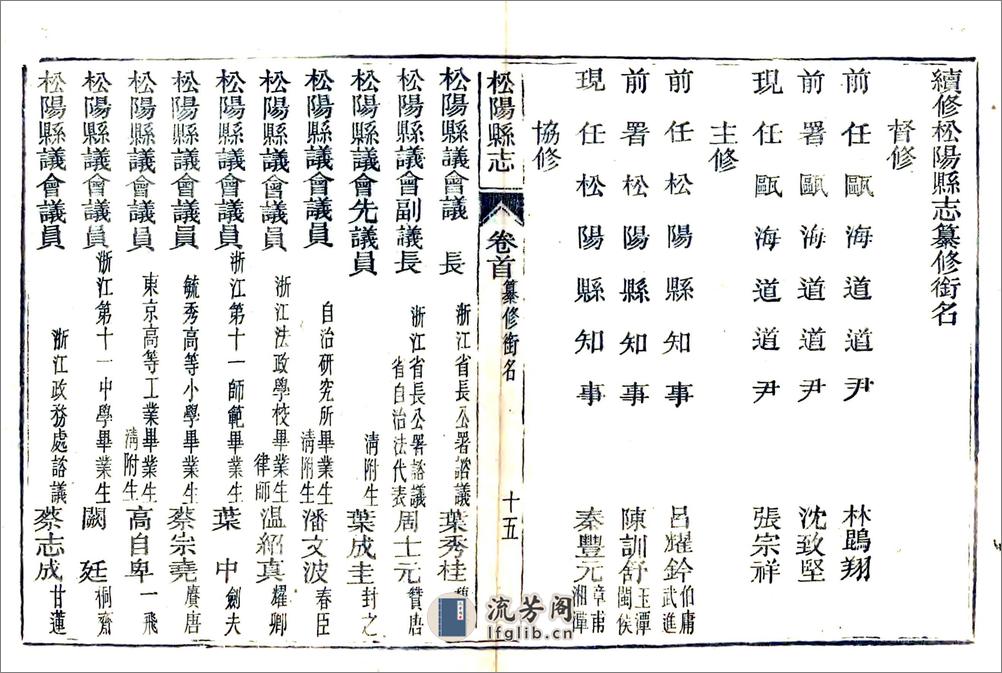 續修松陽縣志纂修銜名
督修
前任甌海道道尹 林鵾翔
前署甌海道道尹 沈致堅
現任甌海道道尹 張宗祥
主修
前任松陽縣知事 呂耀鈐 伯庸 武進
前署松陽縣知事 陳訓舒 玉潭 閩侯
現任松陽縣知事 秦豐元 章甫 湘潭
協修
松陽縣志 卷首 纂修銜名 十五
松陽縣議會議長 浙江省長公署諮議 葉秀桂
松陽縣議會副議長 浙江省長公署諮議 省自治法代表 周士元 贊唐
松陽縣議會先議員 清附生 葉成圭 封之
松陽縣議會議員 自治研究所畢業生 清附生 潘文波 春臣
松陽縣議會議員 浙江法政學校畢業生 律師 温紹真 耀卿
松陽縣議會議員 浙江第十一師範畢業生 葉中 劍夫
松陽縣議會議員 毓秀高等小學畢業生 蔡崇堯 賡唐
松陽縣議會議員 東京高等工業畢業生 清附生 高自卑 一飛
松陽縣議會議員 浙江第十一中學畢業生 闕廷 桐齋
松陽縣議會議員 浙江政務處諮議 蔡志成 甘蓮
流芳阁
lfglib.cn